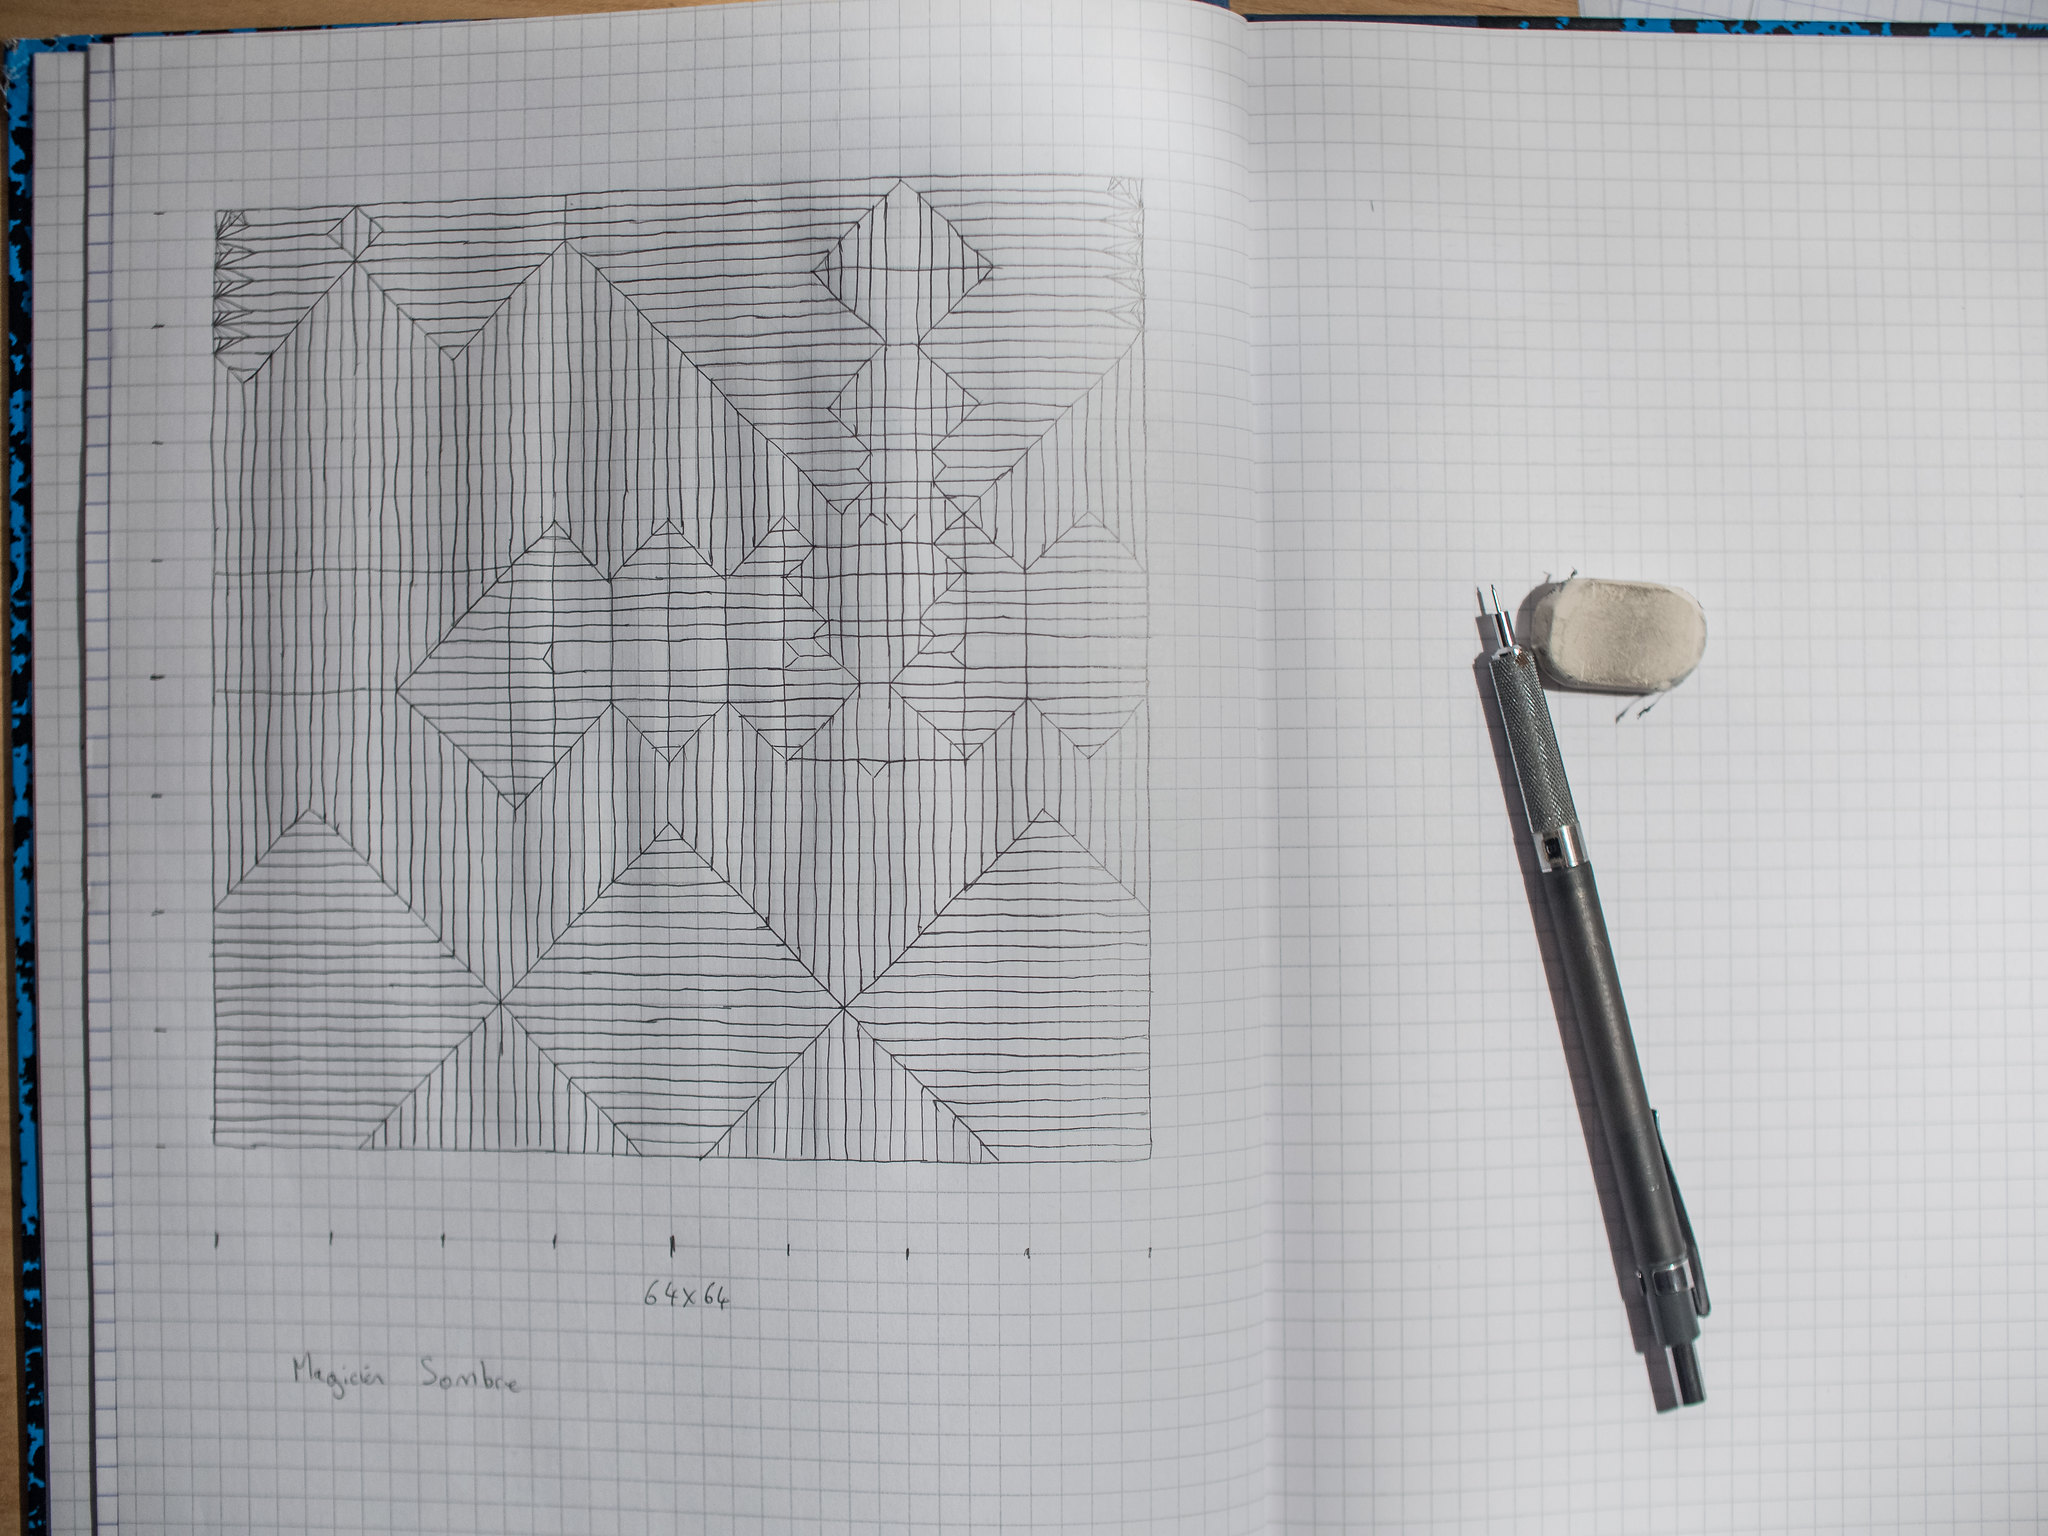 64x64
Magicien Sombre